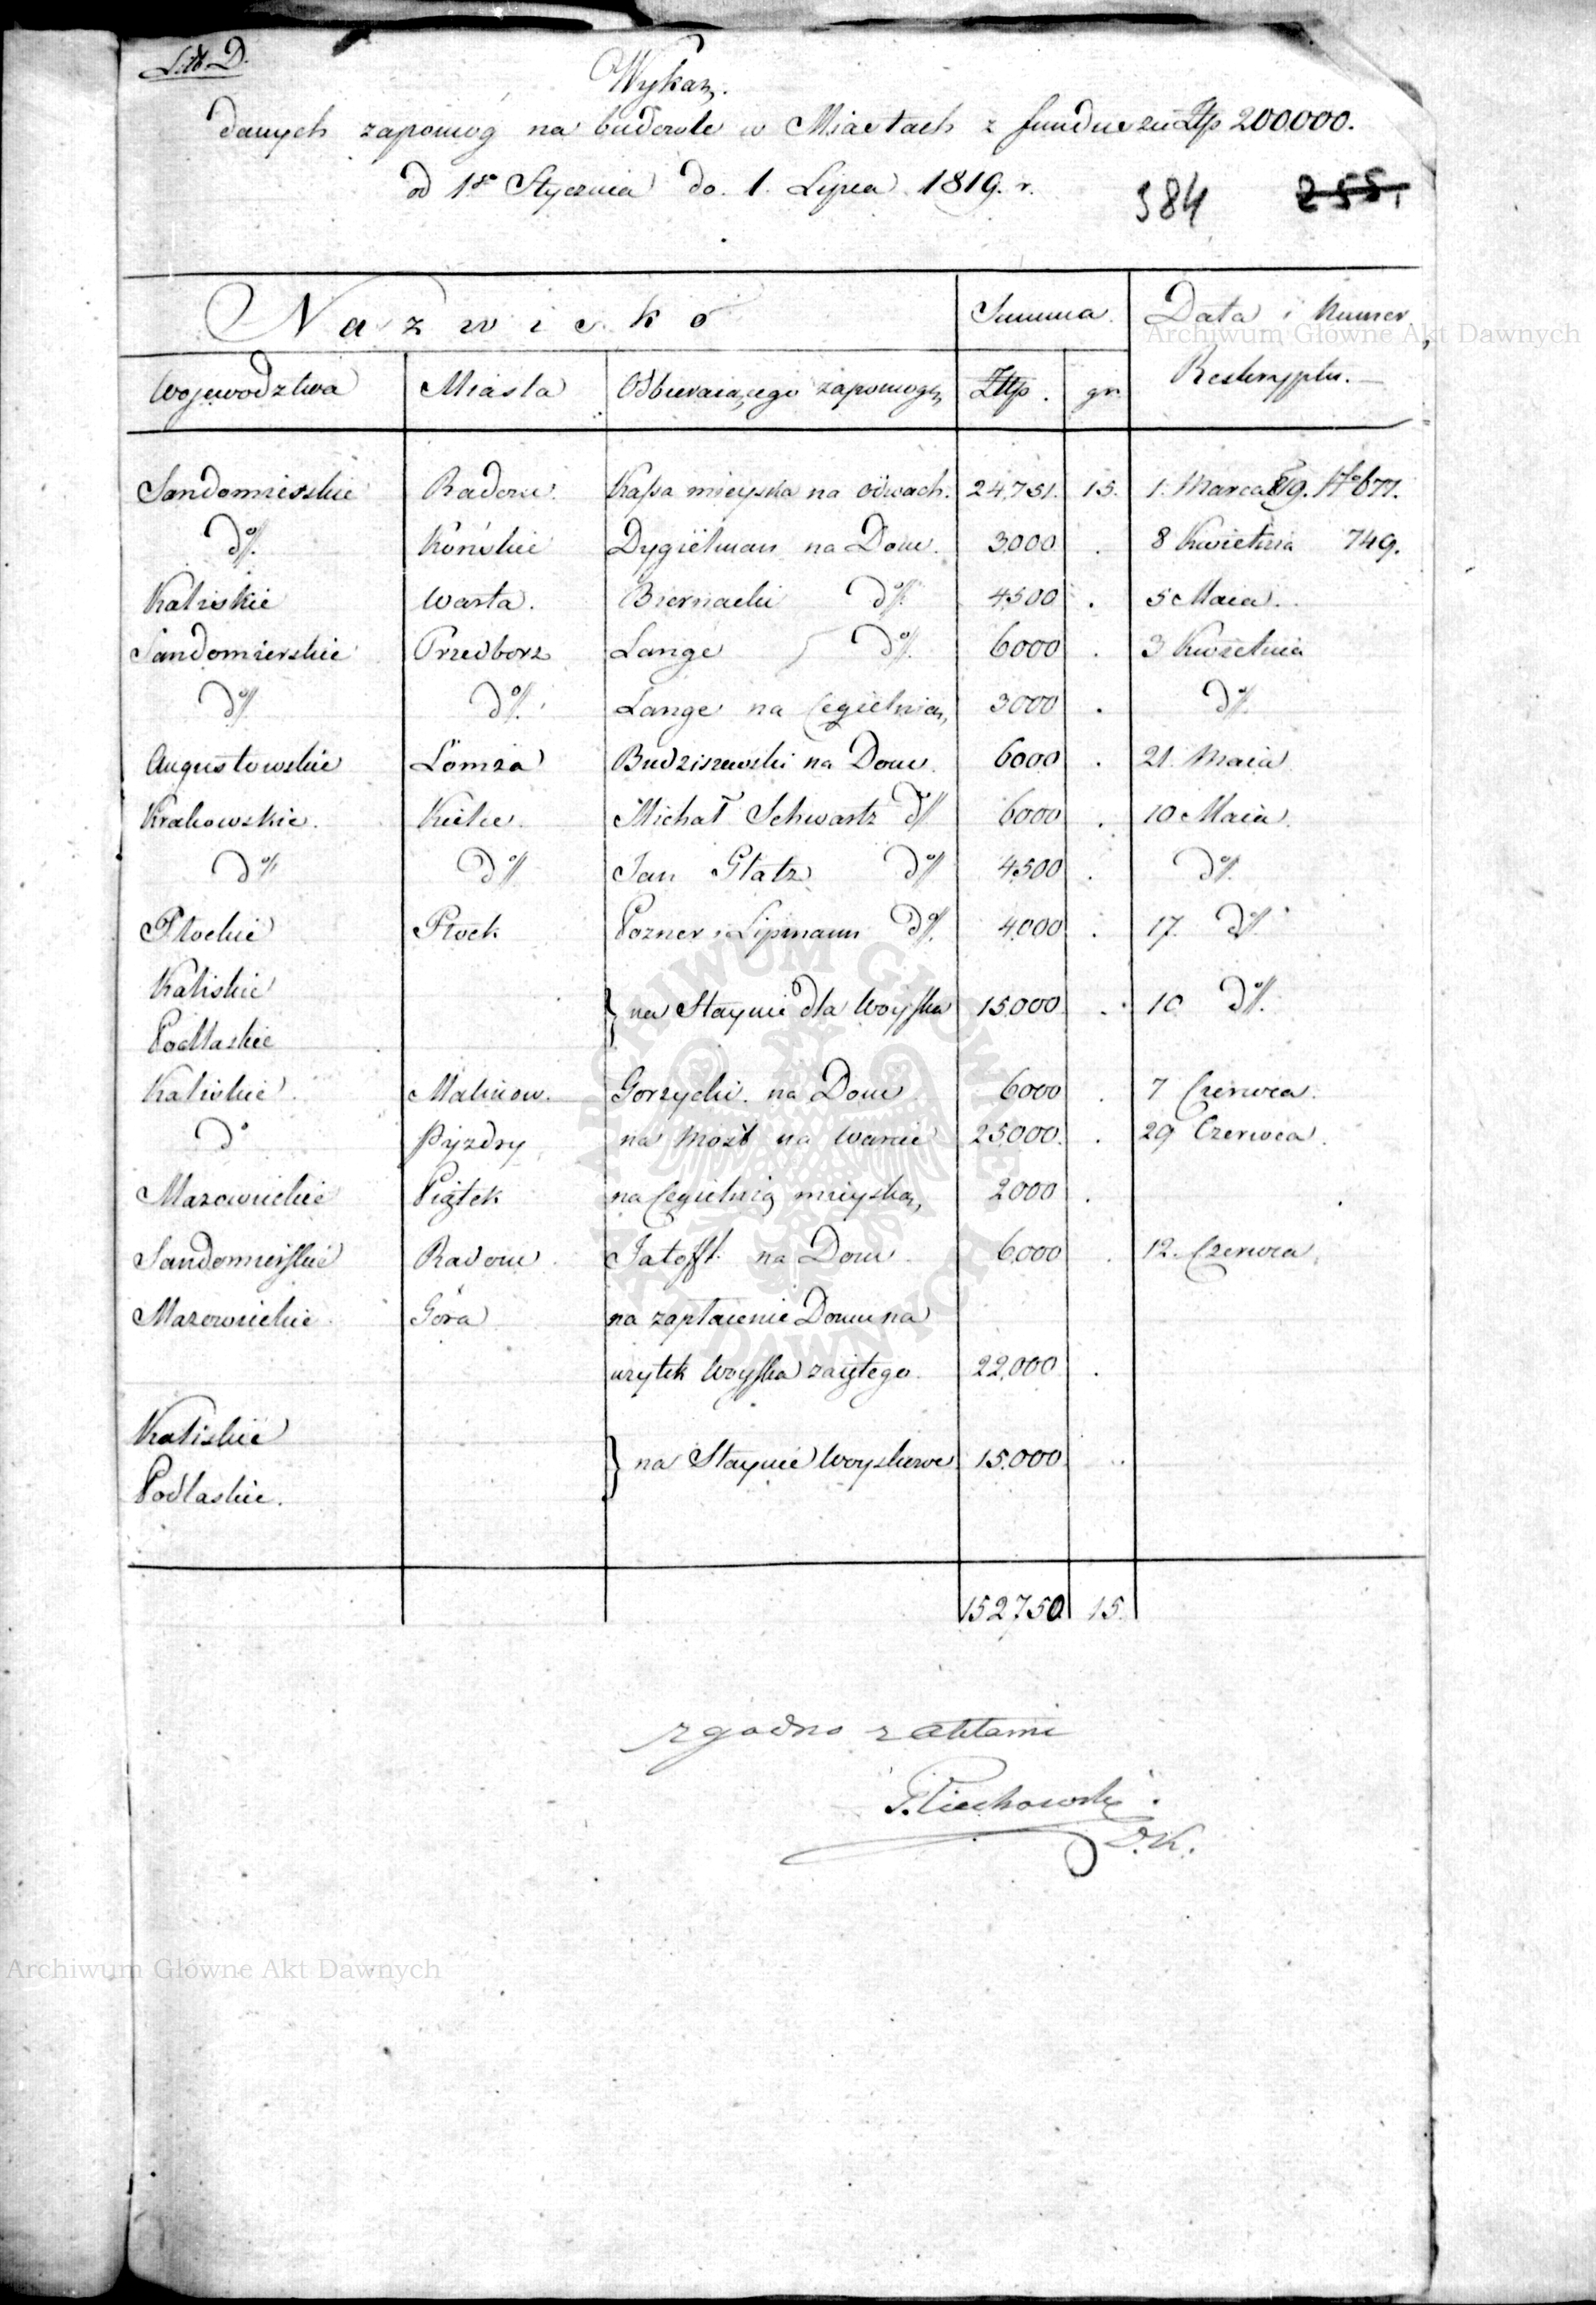 Litt D.
Wykaz.
danych zapomog na budowle w Miastach z funduszu Złp 200000.
od 1go Stycznia do 1. Lipca 1819. r.
384 255.
Nazwisko Summa. Data i Numer
Archiwum Główne Akt Dawnych
Województwa Miasta Odbieraiącego zapomogę Złp. gr. Reskryptu.
Sandomierskie Radom. Kassa mieyska na odwach. 24,751. 15. 1. Marca 819. No 677.
do. Końskie Dygielman na Dom. 3000 . 8 Kwietnia 749.
Kaliskie Warta. Biernacki do. 4500 . 5 Maia.
Sandomierskie Przedborz Lange do. 6000 . 3 Kwietnia
do. do. Lange na Cegielnią 3000 . do.
Augustowskie Łomza Budziszewski na Dom. 6000 . 21. Maia
Krakowskie. Kielce. Michał Schwartz do 6000 . 10 Maia.
do do Jan Glatz do 4500 . do.
Płockie Płock Pozner i Lipmann do. 4000 . 17. do.
Kaliskie
} na Staynie dla Woyska 15000 . 10 do.
Podlaskie
Kaliskie. Gorzycki. na Dom 6000 . 7 Czerwca.
do Pyzdry na Most na Warcie 25000. . 29 Czerwca.
Mazowieckie Piątek na Cegielnią mieyską 2000 .
Sandomierskie Radom. na Dom. 6000 . 12. Czerwca.
Mazowieckie Góra na zapłacenie Domu na
uzytek Woyska zaiętego. 22,000 .
Kaliskie
} na Staynie Woyskowe 15.000 .
Podlaskie.
152750 15.
zgodno z aktami
O.K.
Archiwum Główne Akt Dawnych
ARCHIWUM GŁÓWNE AKT DAWNYCH